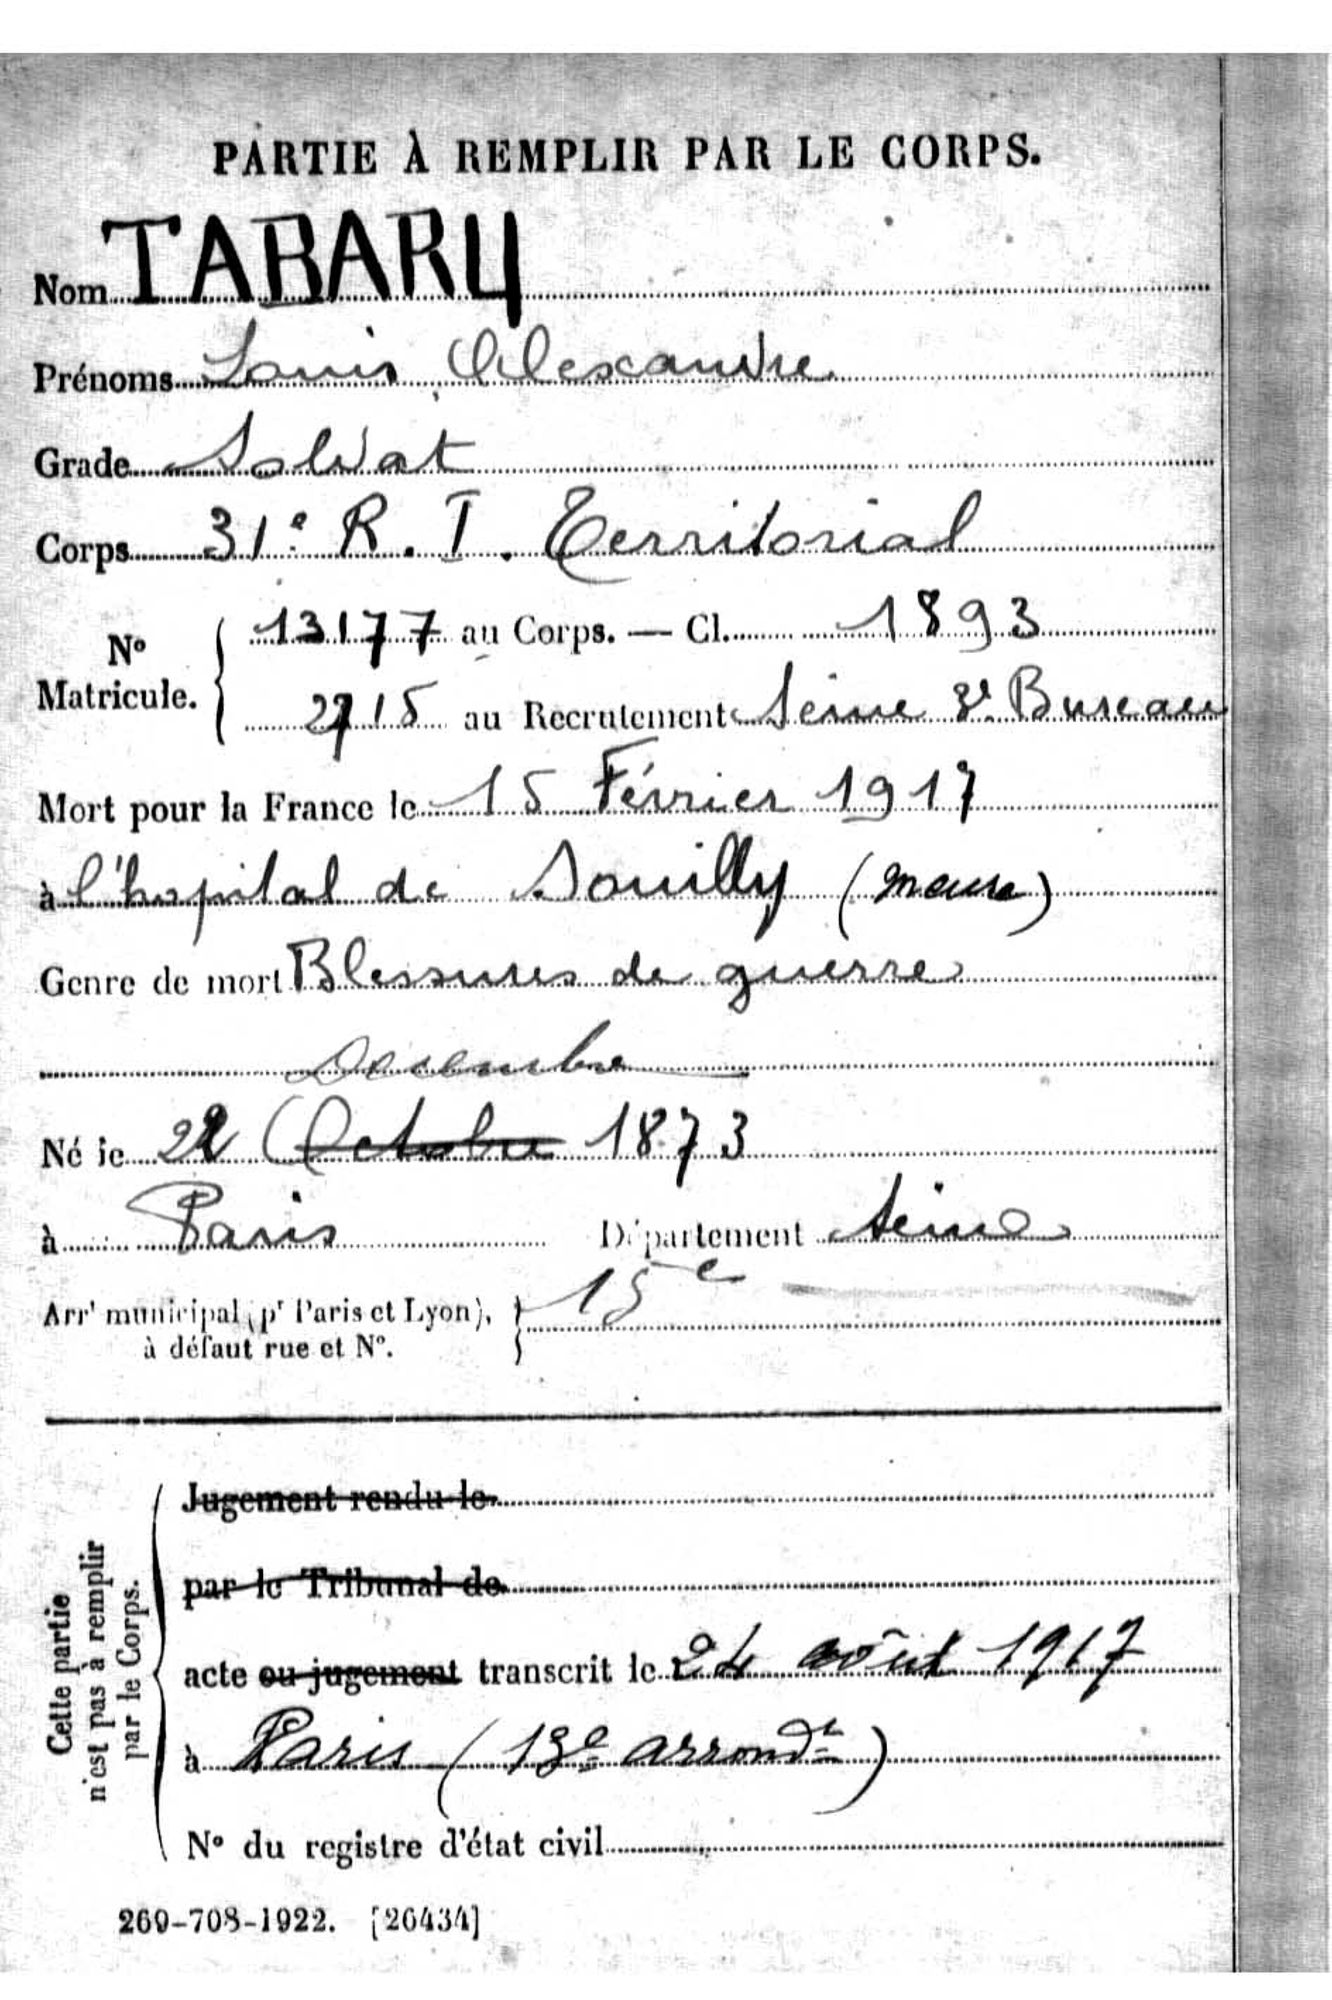 PARTIE À REMPLIR PAR LE CORPS.
Nom TABARY
Prénoms Louis Alexandre
Grade Soldat
Corps 31e R. I. Territorial
No Matricule. { 13177 au Corps. — Cl. 1893
2715 au Recrutement Seine 3e Bureau
Mort pour la France le 15 Février 1917
à l'hopital de Souilly (Meuse)
Genre de mort Blessures de guerre
Decembre
Né le 22 Octobre 1873
à Paris Département Seine
Arrt municipal (pr Paris et Lyon), } 15e
à défaut rue et No.
Cette partie
n'est pas à remplir
par le Corps.
Jugement rendu le
par le Tribunal de
acte ou jugement transcrit le 24 août 1917
à Paris (13e arrondt)
No du registre d'état civil
269-708-1922. [26434]